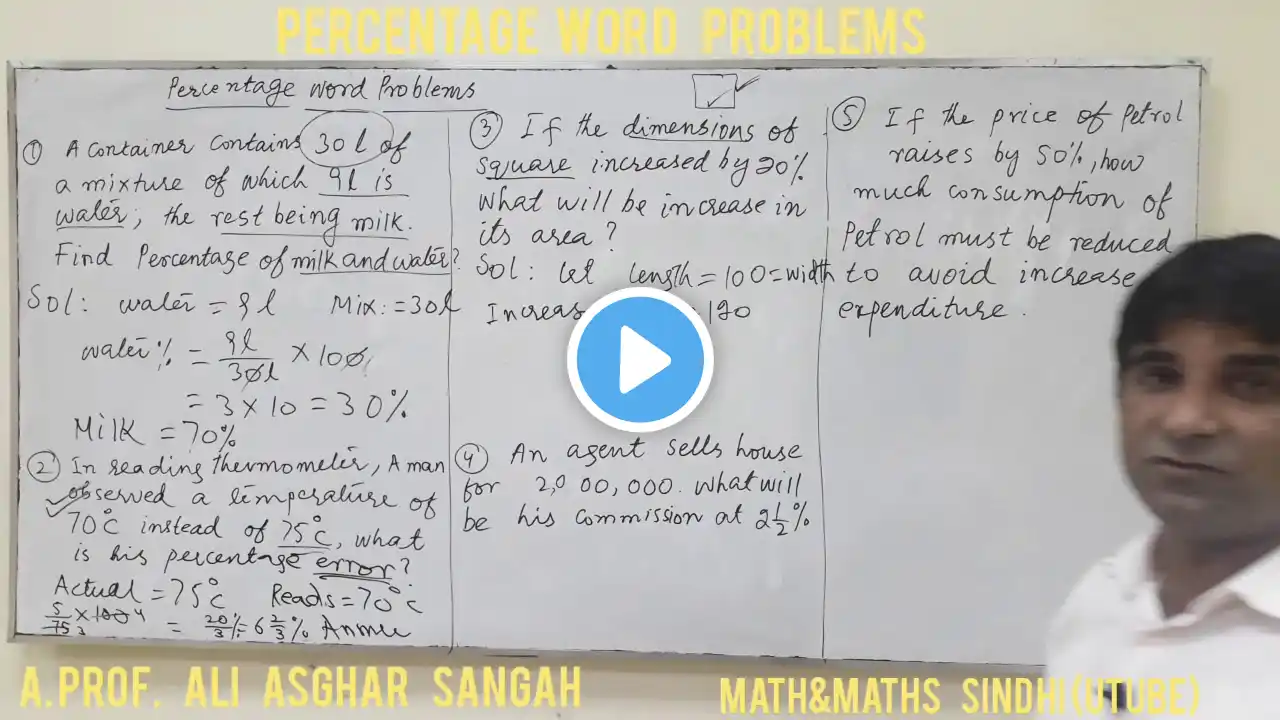 PERCENTAGE WORD PROBLEMS
Percentage word Problems
① A container contains 30 l of
a mixture of which 9l is
water, the rest being milk.
Find Percentage of milk and water?
Sol: water = 9 l Mix: = 30l
water % = 9l/30l × 100
= 3 × 10 = 30%
Milk = 70%
② In reading thermometer, A man
observed a temperature of
70°c instead of 75°c, what
is his percentage error?
Actual = 75°c Reads = 70°c
5/75 × 100 4 = 20/3 % = 6 2/3 %
3
③ If the dimensions of
square increased by 20%
what will be increase in
its area?
Sol: let length = 100 = width
Increas 120
④ An agent sells house
for 2,000,000. what will
be his commission at 2½%
⑤ If the price of Petrol
raises by 50%, how
much consumption of
Petrol must be reduced
to avoid increase
expenditure.
A.PROF. ALI ASGHAR SANGAH
MATH&MATHS SINDHI(UTUBE)